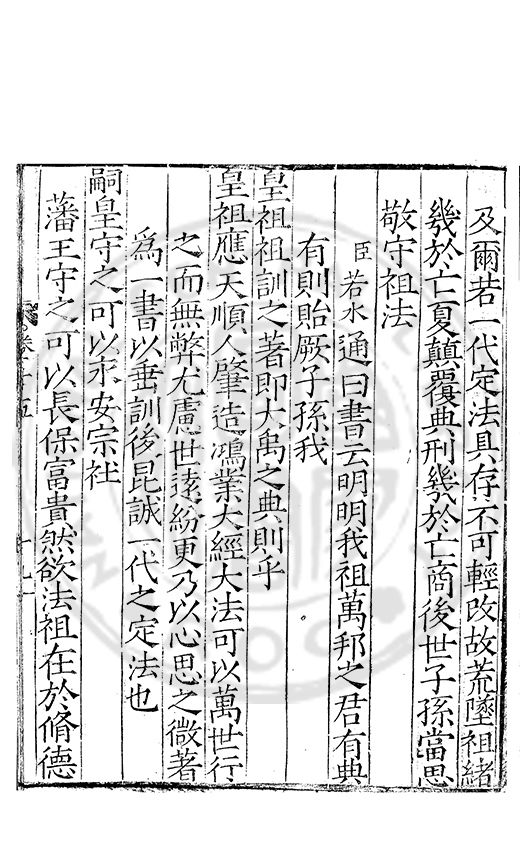 及爾若一代定法具存不可輕改故荒墜祖緒
幾於亡夏顛覆典刑幾於亡商後世子孫當思
敬守祖法
臣若水通曰書云明明我祖萬邦之君有典
有則貽厥子孫我
皇祖祖訓之著即大禹之典則乎
皇祖應天順人肇造鴻業大經大法可以萬世行
之而無弊尤慮世遠紛更乃以心思之微著
為一書以垂訓後昆誠一代之定法也
嗣皇守之可以永安宗社
藩王守之可以長保富貴然欲法祖在於脩德